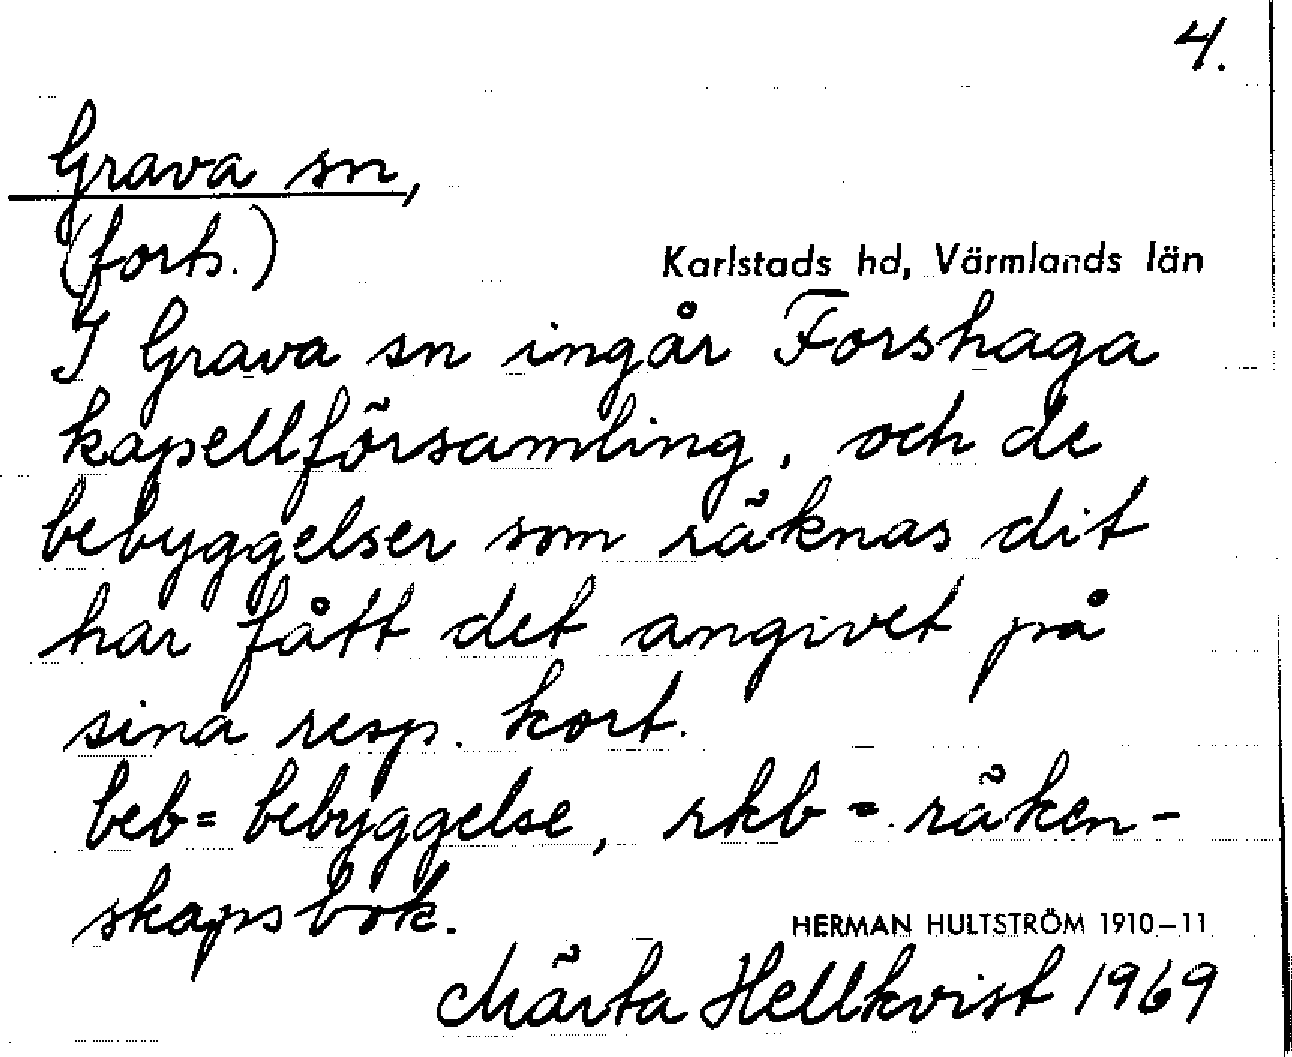 4.
Grava sn,
(forts.)
Karlstads hd, Värmlands län
I Grava sn ingår Forshaga
kapellförsamling, och de
bebyggelser som räknas dit
har fått det angivet på
sina resp. kort.
beb = bebyggelse, rkb = räken-
skapsbok.
HERMAN HULTSTRÖM 1910–11
Märta Hellkvist 1969